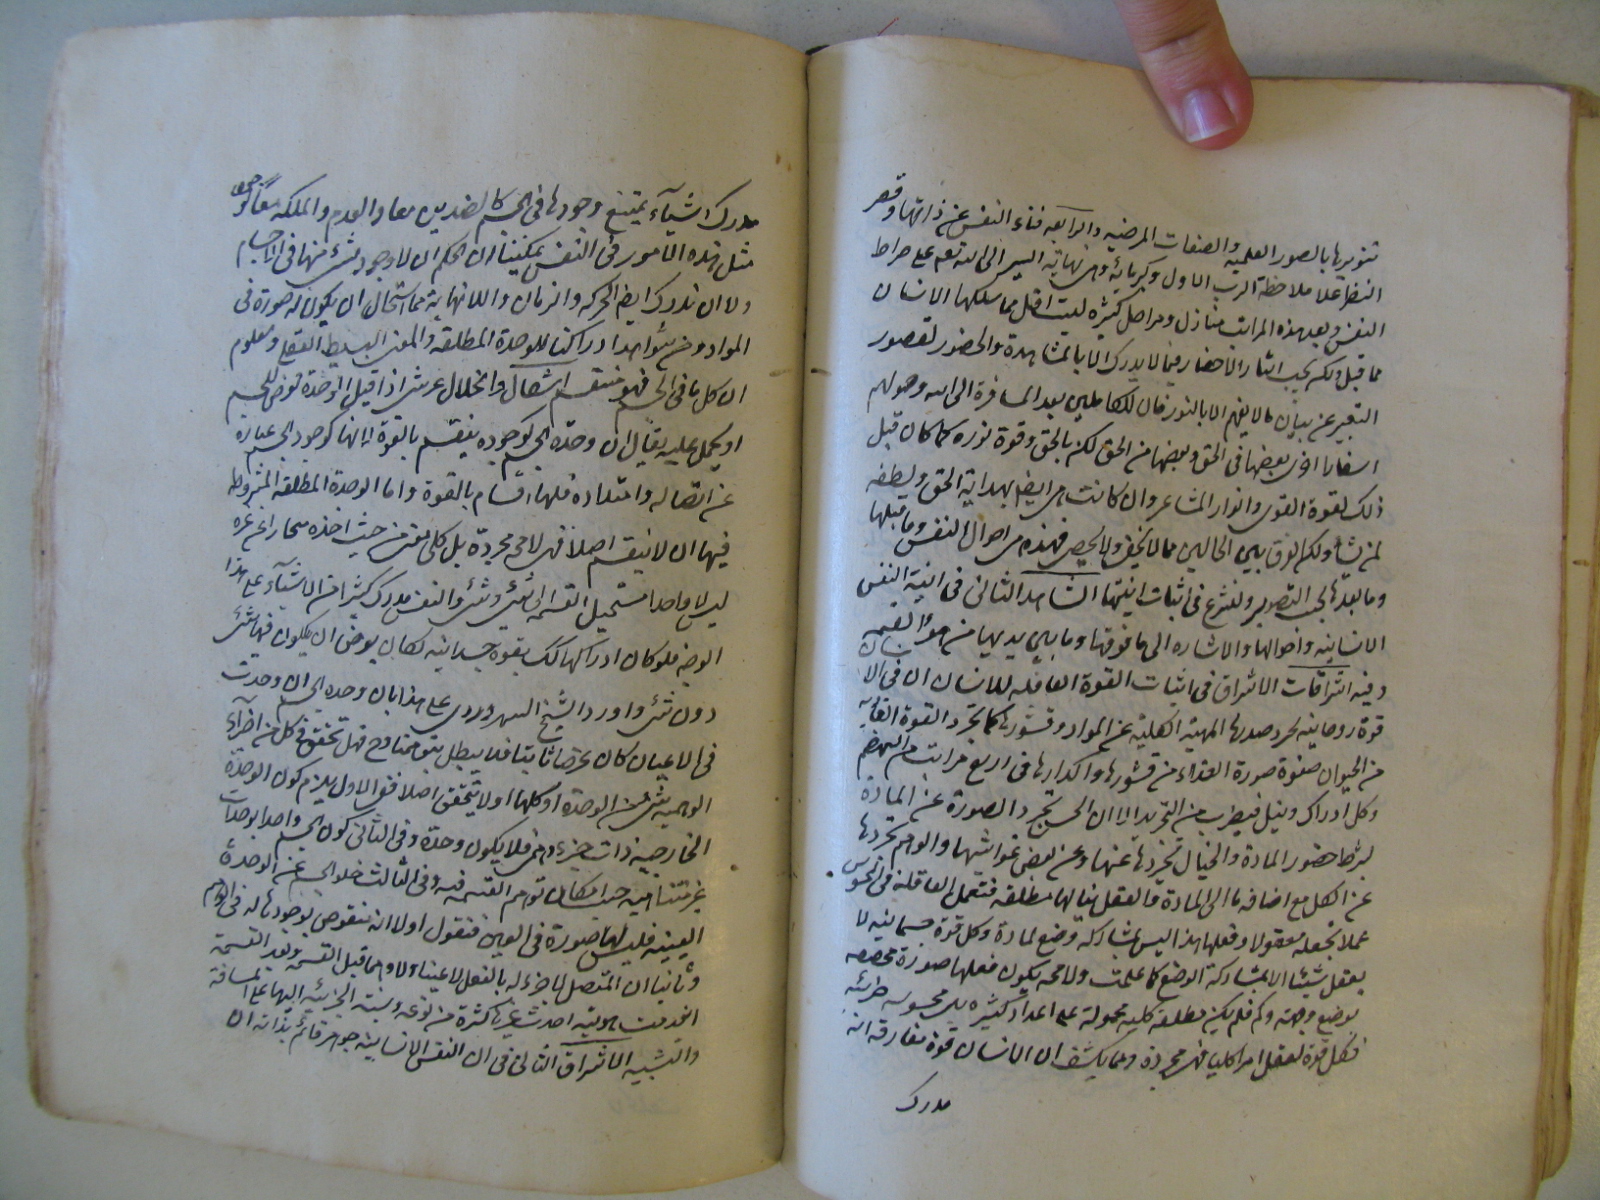 تنويرها بالصور العلميه والصفات المرضيه والرابعه فناء النفس عن ذاتها وقصر
النظر على ملاحظة الرب الاول وكبريائه وهى نهاية السير الى الله تعم على صراط
النفس وبعد هذه المراتب منازل ومراحل كثيره ليست اقل مما سلكها الانسان
مما قبل ولكن يجب ايثار الاختصار فيما لا يدرك الا بالمشاهدة والحضور لقصور
التعبير عن بيان ما لا يفهم الا بالنور فان للكاملين بعد المسافرة الى الله وصولهم
اسفارا اخرى بعضها فى الحق وبعضها من الحق لكن بالحق وقوة نوره كما كان قبل
ذلك لقوة القوى وانوار المشاعر وان كانت هى ايضا بهداية الحق ولطفه
لمن شاء ولكن الفرق بين الحالين مما لا يخفى ولا يحصى فهذه من احوال النفس وما قبلها
وما بعدها بحسب التصوير ولنشرع فى اثبات انيتها الشاهد الثانى فى انية النفس
الانسانيه واحوالها والاشاره الى ما فوقها وما بين يديها من احوال القيمه
وفيه اشراقات الاشراق فى اثبات القوة العاقله للانسان ان فى الانسان
قوة روحانيه تجرد صدرها المهية الكلية عن المواد وقشورها كما تجرد القوة الغاذيه
من الحيوان صفوة صورة الغذاء من قشورها واكدارها فى اربع مراتب من الهضم
وكل ادراك ونيل فبضرب من التجريد الا ان الحس تجرد الصورة عن المادة
بشرط حضور المادة والخيال تجردها عنها وعن بعض غواشيها والوهم تجردها
عن الكل مع اضافه ما الى المادة والعقل ينالها مطلقه فتعمل العاقله فى المحسوس
عملا تجعله معقولا وفعلها هذا ليس بمشاركه وضع لمادة وكل قوة جسمانيه لا
يفعل شيئا الا بمشاركة الوضع كما علمت ولا محه يكون فعلها صورة مخصصه
بوضع وجهته وكم فلم يكن مطلقه كليه محمولة على اعداد كثيره بل محسوسه جزئيه
فكل قوة تعقل امرا كليا فهى مجردة ومما يكشف ان الانسان قوة مفارقه انه
مدرك
مدرك اشياء يمتنع وجودها فى الجسم كالضدين معا والعدم والملكه معا
مثل هذه الامور فى النفس يمكننا ان نحكم ان لا وجود لشئ منها فى الاجسام
ولا ان ندرك ايضا الحركه والزمان واللانهاية مما استحال ان يكون له صورة فى
المواد ومن شواهدا دراكنا للوحدة المطلقه والمعنى البسيط العقلى ومعلوم
ان كل ما فى الجسم فهو منقسم اشكال وانحلال عرشى اذا قيل الوحدة تعرض للجسم
او يحمل عليه يقال ان وحدة الجسم كوجوده ينقسم بالقوة لانها كوجود الجسم عباره
عن اتصاله وامتداده فلها اقسام بالقوة واما الوحدة المطلقه المشروط
فيها ان لا ينقسم اصلا فهى لا محه مجردة بل كلى معنى من حيث اخذه منحازا عن غيره
ليس الا واحدا مستحيل القسمه الى شئ وشئ والنفس مدرك كثيرا من الاشياء على هذا
الوجه فلو كان ادراكها لك بقوة جسدانيه لكان يعرض ان يكون فيها شئ
دون شئ واورد الشيخ السهروردى على هذا بان وحده الجسم ان وحدت
فى الاعيان كان عرضا ثابتا فلا يبطل بتوهمنا وح فهل تحقق فى كل من اجزاء
الوهميه شئ من الوحدة او كلها او لا يتحقق اصلا ففى الاول يلزم كون الوحدة
الخارجيه ذات جزء وهمى فلا يكون وحدة وفى الثانى كون الجسم واحدا بوحدات
غير متناهيه حسب امكان توهم القسمه فيه وفى الثالث خلو الجسم عن الوحدة
العينيه فليس لها صورة فى العين فنقول اولا انه منقوض بوجودها له فى الوهم
وثانيا ان المتصل لا جزء له بالفعل لا عينا ولا وهما قبل القسمة وبعد القسمة
انعدمت هويته احدثت غيرها كثرة من نوعه ونسبة الجزئيه اليها على المسافة
والتشبيه الاشراق الثانى فى ان النفس الانسانيه جوهر قائم بذاته ان